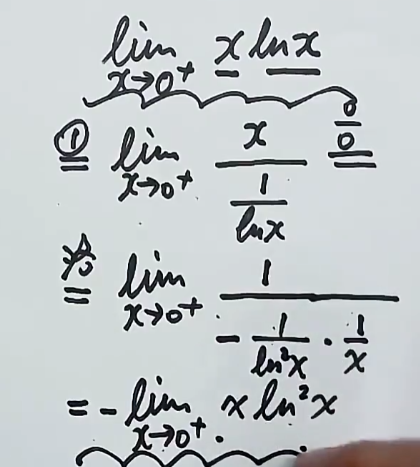 lim x→0⁺ x ln x
① = lim x→0⁺ x / (1 / ln x) 0/0
洛 = lim x→0⁺ 1 / (- 1 / ln²x · 1 / x)
= - lim x→0⁺ · x ln²x